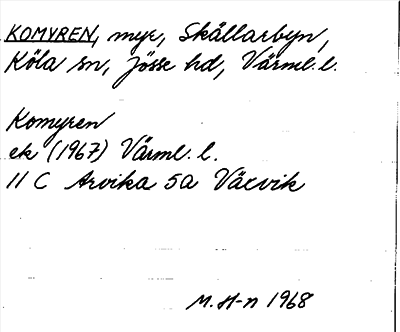 KOMYREN, myr, Skållarbyn,
Köla sn, Jösse hd, Värml. l.
Komyren
ek (1967) Värml. l.
11 C Arvika 5a Väcvik
M. H-n 1968